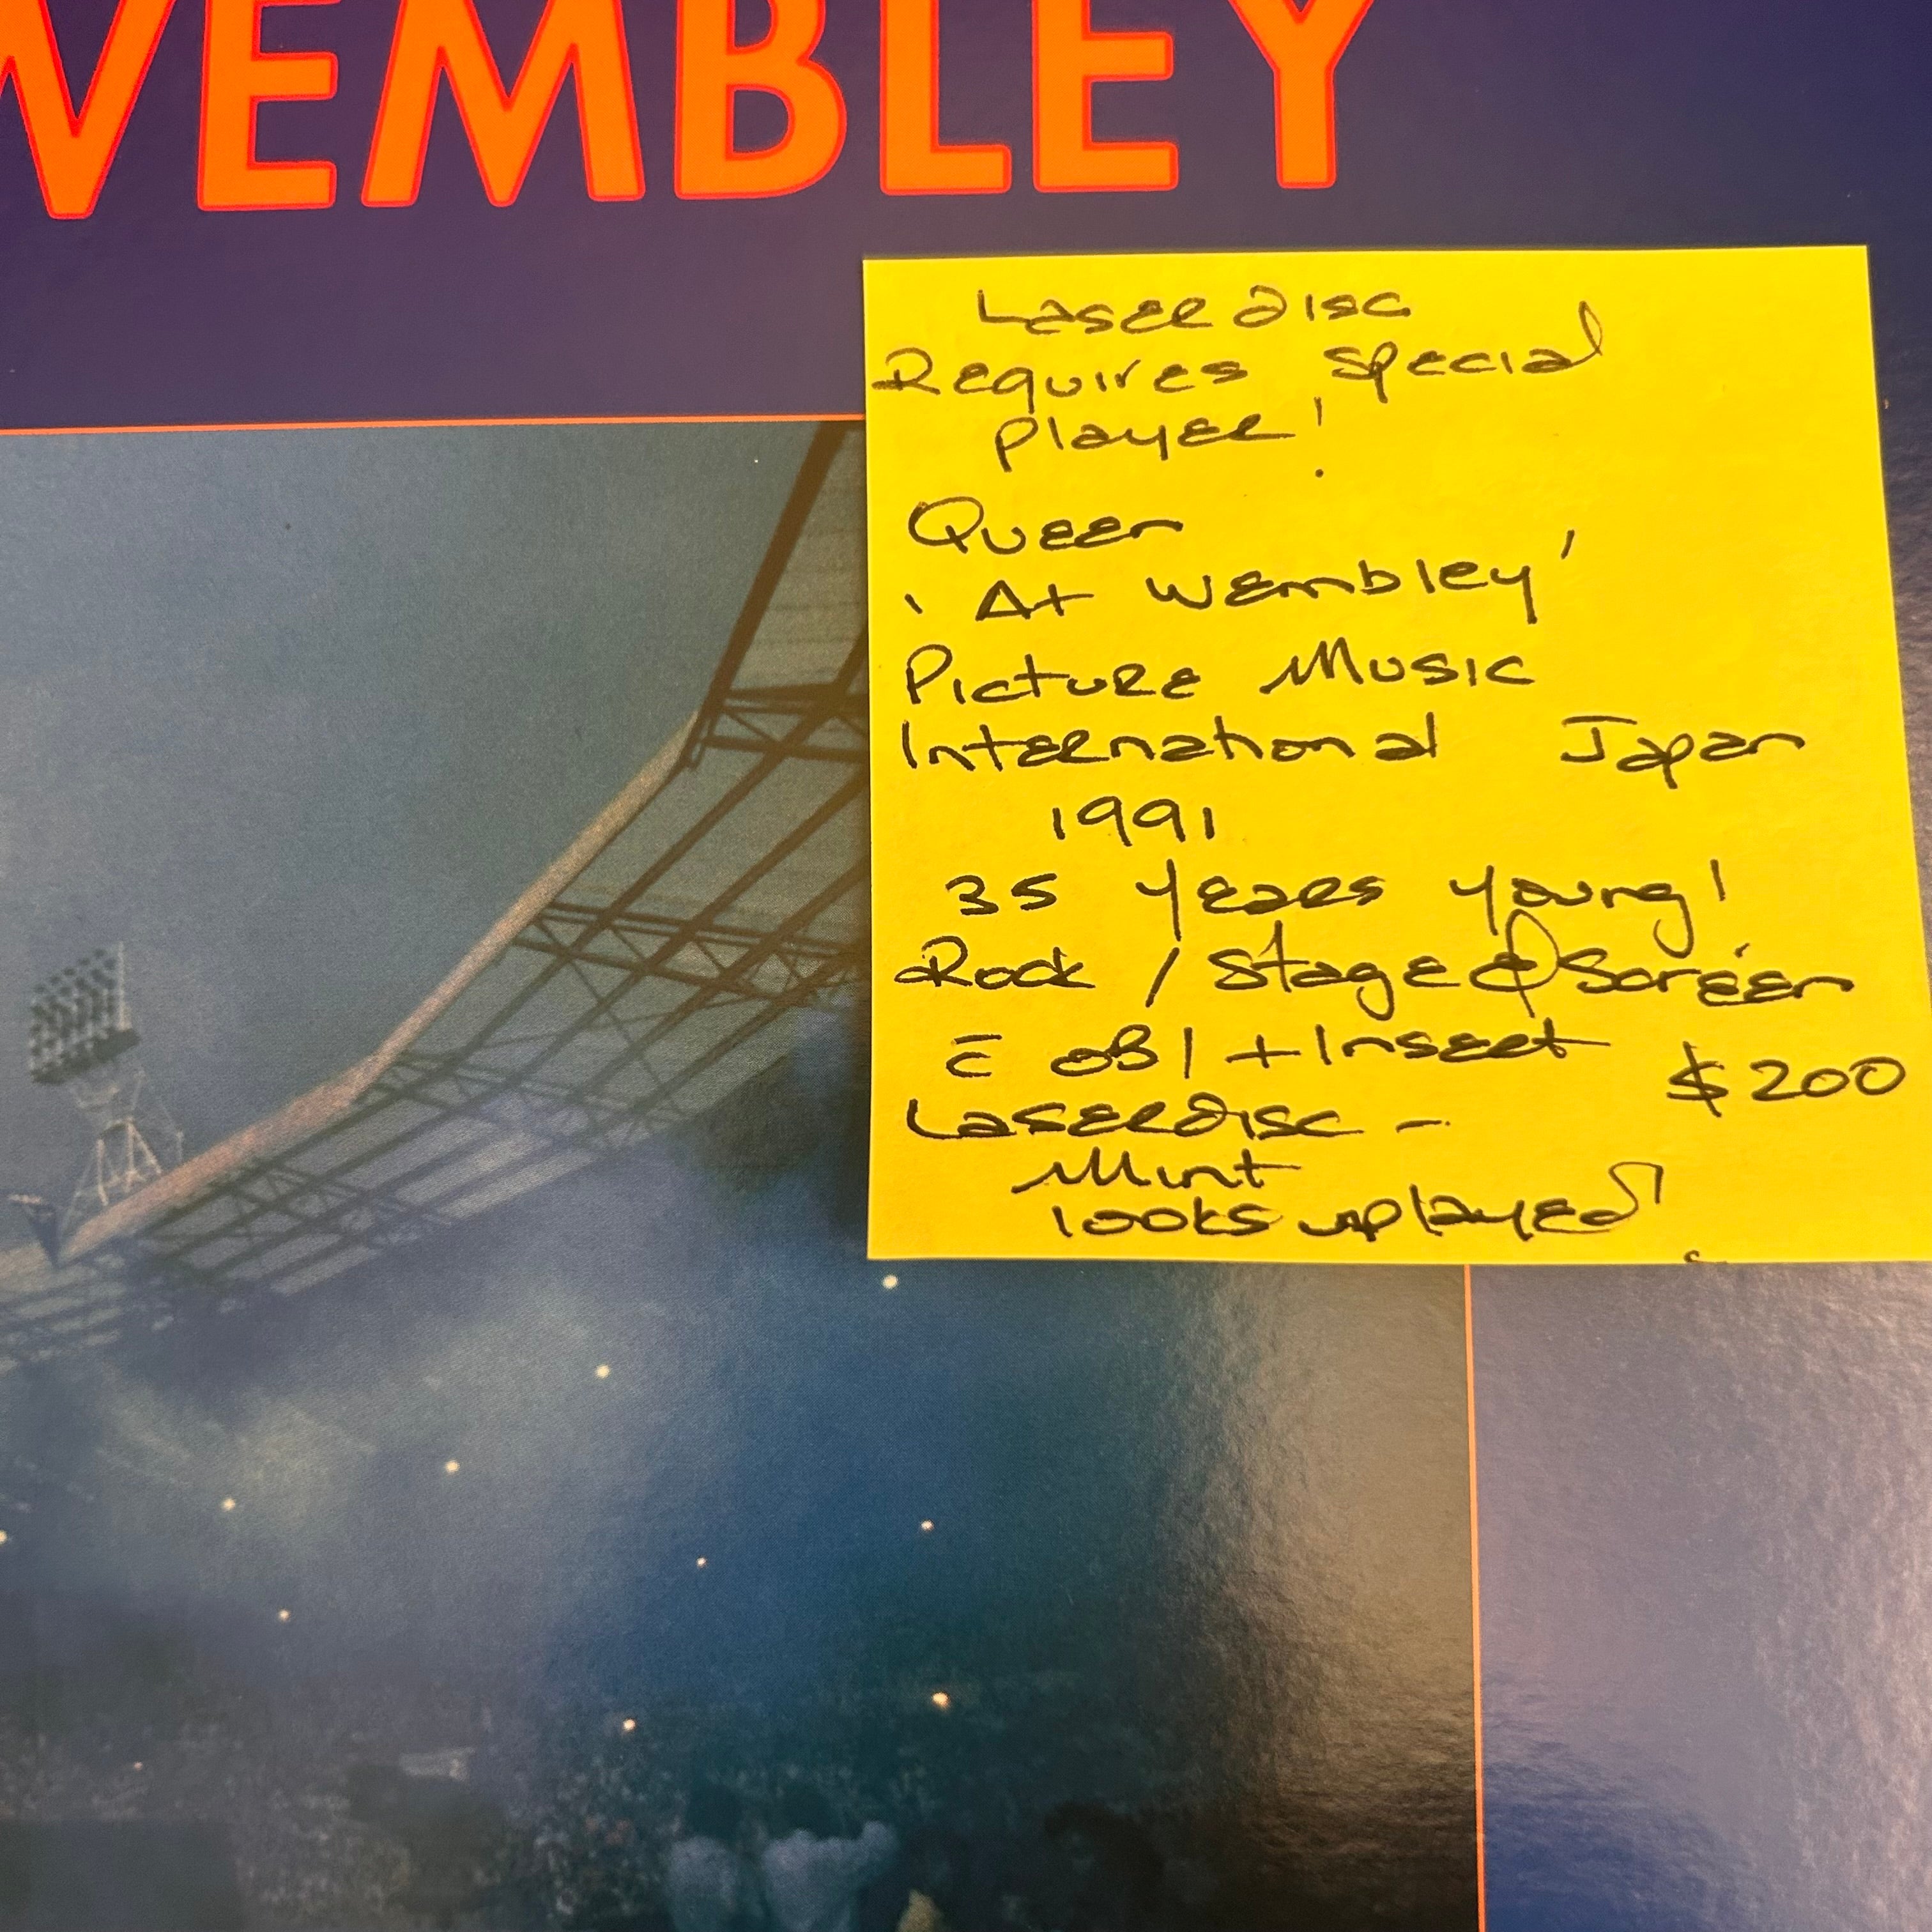 WEMBLEY
Laserdisc
Requires special
player!
Queen
'At Wembley'
Picture Music
International Japan
1991
35 years young!
Rock / Stage & Screen
c̄ OBI + Insert
$200
Laserdisc -
Mint
looks unplayed